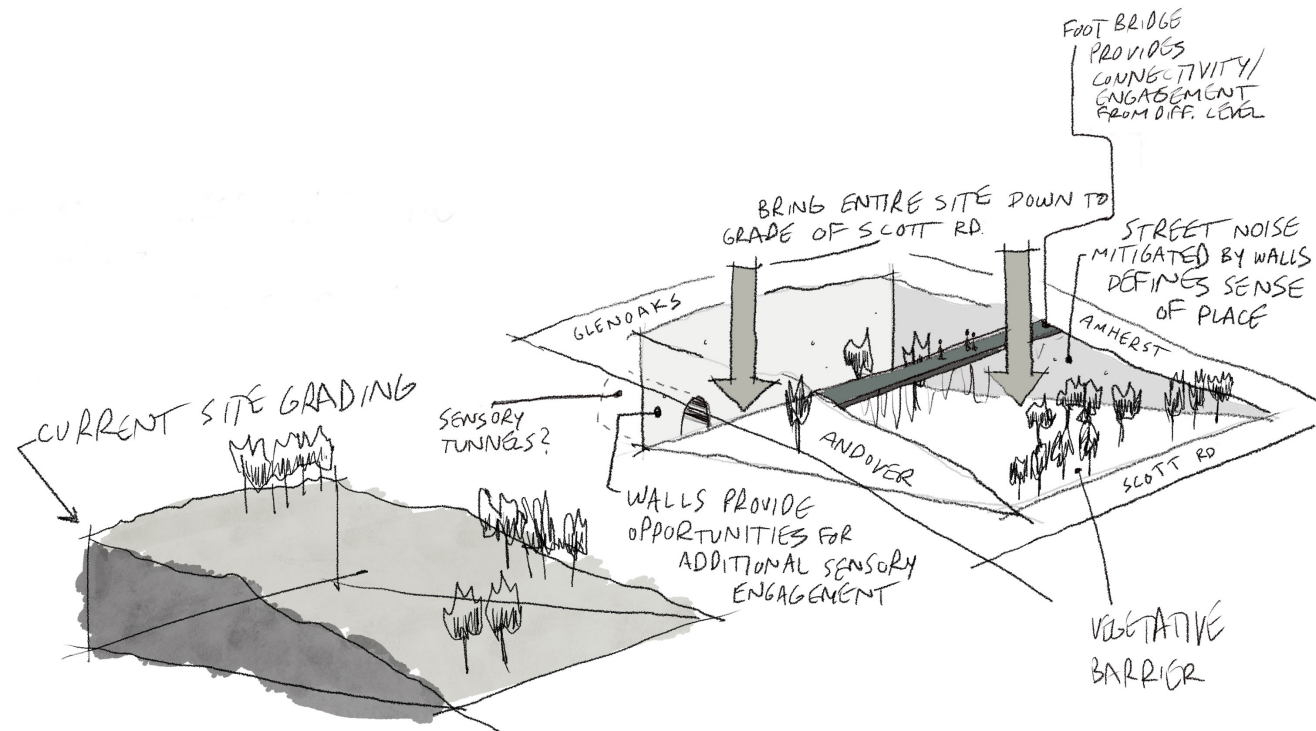 FOOT BRIDGE
PROVIDES
CONNECTIVITY/
ENGAGEMENT
FROM DIFF. LEVEL
BRING ENTIRE SITE DOWN TO
GRADE OF SCOTT RD.
STREET NOISE
MITIGATED BY WALLS
DEFINES SENSE
OF PLACE
GLENOAKS
AMHERST
CURRENT SITE GRADING
SENSORY
TUNNELS?
ANDOVER
SCOTT RD
WALLS PROVIDE
OPPORTUNITIES FOR
ADDITIONAL SENSORY
ENGAGEMENT
VEGETATIVE
BARRIER